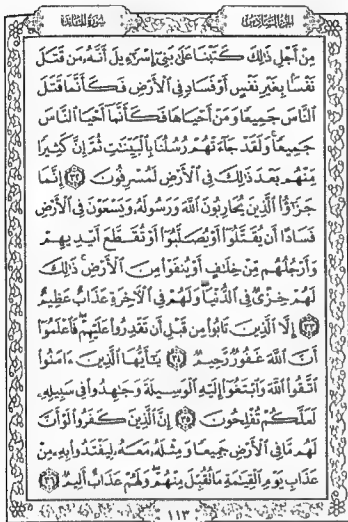 سُورَةُ المَائِدَة الجُزءُ السَّادِسُ
مِنْ أَجْلِ ذَٰلِكَ كَتَبْنَا عَلَىٰ بَنِىٓ إِسْرَٰٓءِيلَ أَنَّهُۥ مَن قَتَلَ
نَفْسًۢا بِغَيْرِ نَفْسٍ أَوْ فَسَادٍ فِى ٱلْأَرْضِ فَكَأَنَّمَا قَتَلَ
ٱلنَّاسَ جَمِيعًا وَمَنْ أَحْيَاهَا فَكَأَنَّمَآ أَحْيَا ٱلنَّاسَ
جَمِيعًا ۚ وَلَقَدْ جَآءَتْهُمْ رُسُلُنَا بِٱلْبَيِّنَٰتِ ثُمَّ إِنَّ كَثِيرًا
مِّنْهُم بَعْدَ ذَٰلِكَ فِى ٱلْأَرْضِ لَمُسْرِفُونَ ٣٢ إِنَّمَا
جَزَٰٓؤُا۟ ٱلَّذِينَ يُحَارِبُونَ ٱللَّهَ وَرَسُولَهُۥ وَيَسْعَوْنَ فِى ٱلْأَرْضِ
فَسَادًا أَن يُقَتَّلُوٓا۟ أَوْ يُصَلَّبُوٓا۟ أَوْ تُقَطَّعَ أَيْدِيهِمْ
وَأَرْجُلُهُم مِّنْ خِلَٰفٍ أَوْ يُنفَوْا۟ مِنَ ٱلْأَرْضِ ۚ ذَٰلِكَ
لَهُمْ خِزْىٌ فِى ٱلدُّنْيَا ۖ وَلَهُمْ فِى ٱلْءَاخِرَةِ عَذَابٌ عَظِيمٌ
٣٣ إِلَّا ٱلَّذِينَ تَابُوا۟ مِن قَبْلِ أَن تَقْدِرُوا۟ عَلَيْهِمْ ۖ فَٱعْلَمُوٓا۟
أَنَّ ٱللَّهَ غَفُورٌ رَّحِيمٌ ٣٤ يَٰٓأَيُّهَا ٱلَّذِينَ ءَامَنُوا۟
ٱتَّقُوا۟ ٱللَّهَ وَٱبْتَغُوٓا۟ إِلَيْهِ ٱلْوَسِيلَةَ وَجَٰهِدُوا۟ فِى سَبِيلِهِۦ
لَعَلَّكُمْ تُفْلِحُونَ ٣٥ إِنَّ ٱلَّذِينَ كَفَرُوا۟ لَوْ أَنَّ
لَهُم مَّا فِى ٱلْأَرْضِ جَمِيعًا وَمِثْلَهُۥ مَعَهُۥ لِيَفْتَدُوا۟ بِهِۦ مِنْ
عَذَابِ يَوْمِ ٱلْقِيَٰمَةِ مَا تُقُبِّلَ مِنْهُمْ ۖ وَلَهُمْ عَذَابٌ أَلِيمٌ ٣٦
١١٣